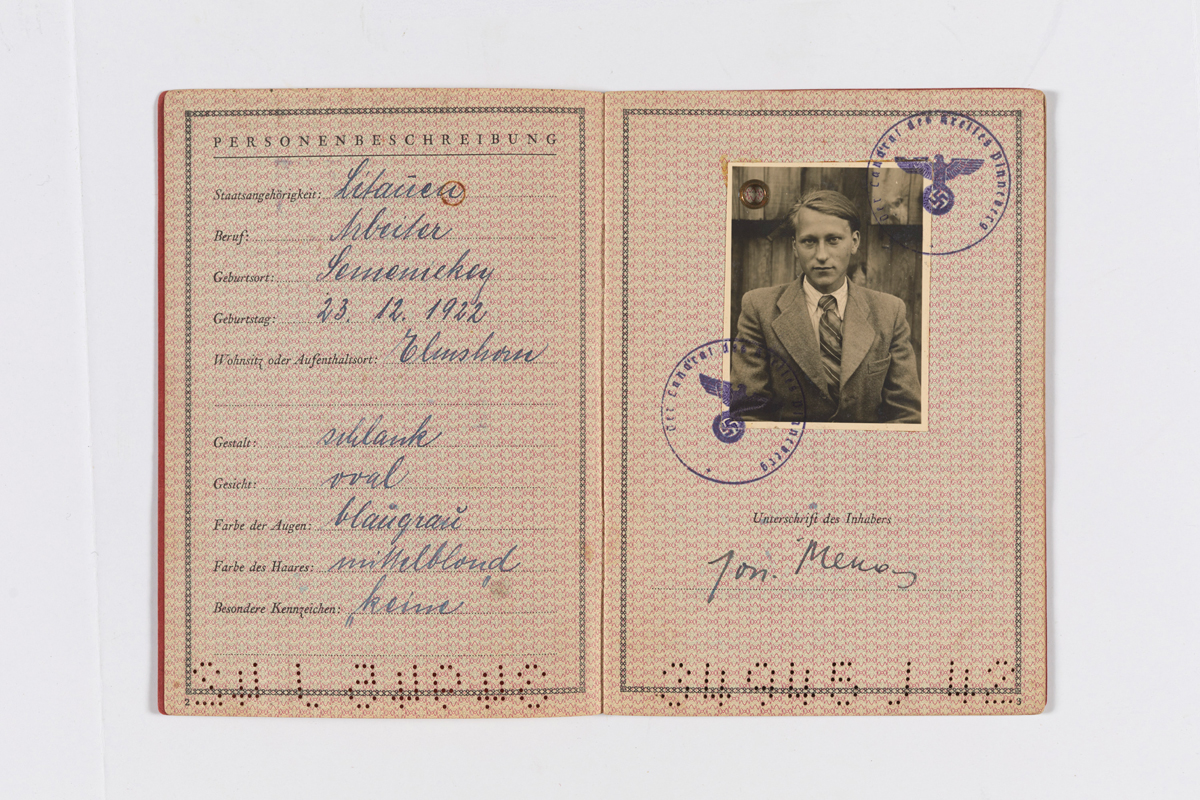 PERSONENBESCHREIBUNG
Staatsangehörigkeit: Litauen
Beruf: Arbeiter
Geburtsort:
Geburtstag: 23. 12. 1922
Wohnsitz oder Aufenthaltsort: Elmshorn
Gestalt: schlank
Gesicht: oval
Farbe der Augen: blaugrau
Farbe des Haares: mittelblond
Besondere Kennzeichen: keine
2
Der Landrat des Kreises Pinneberg
Der Landrat des Kreises Pinneberg
Unterschrift des Inhabers
3